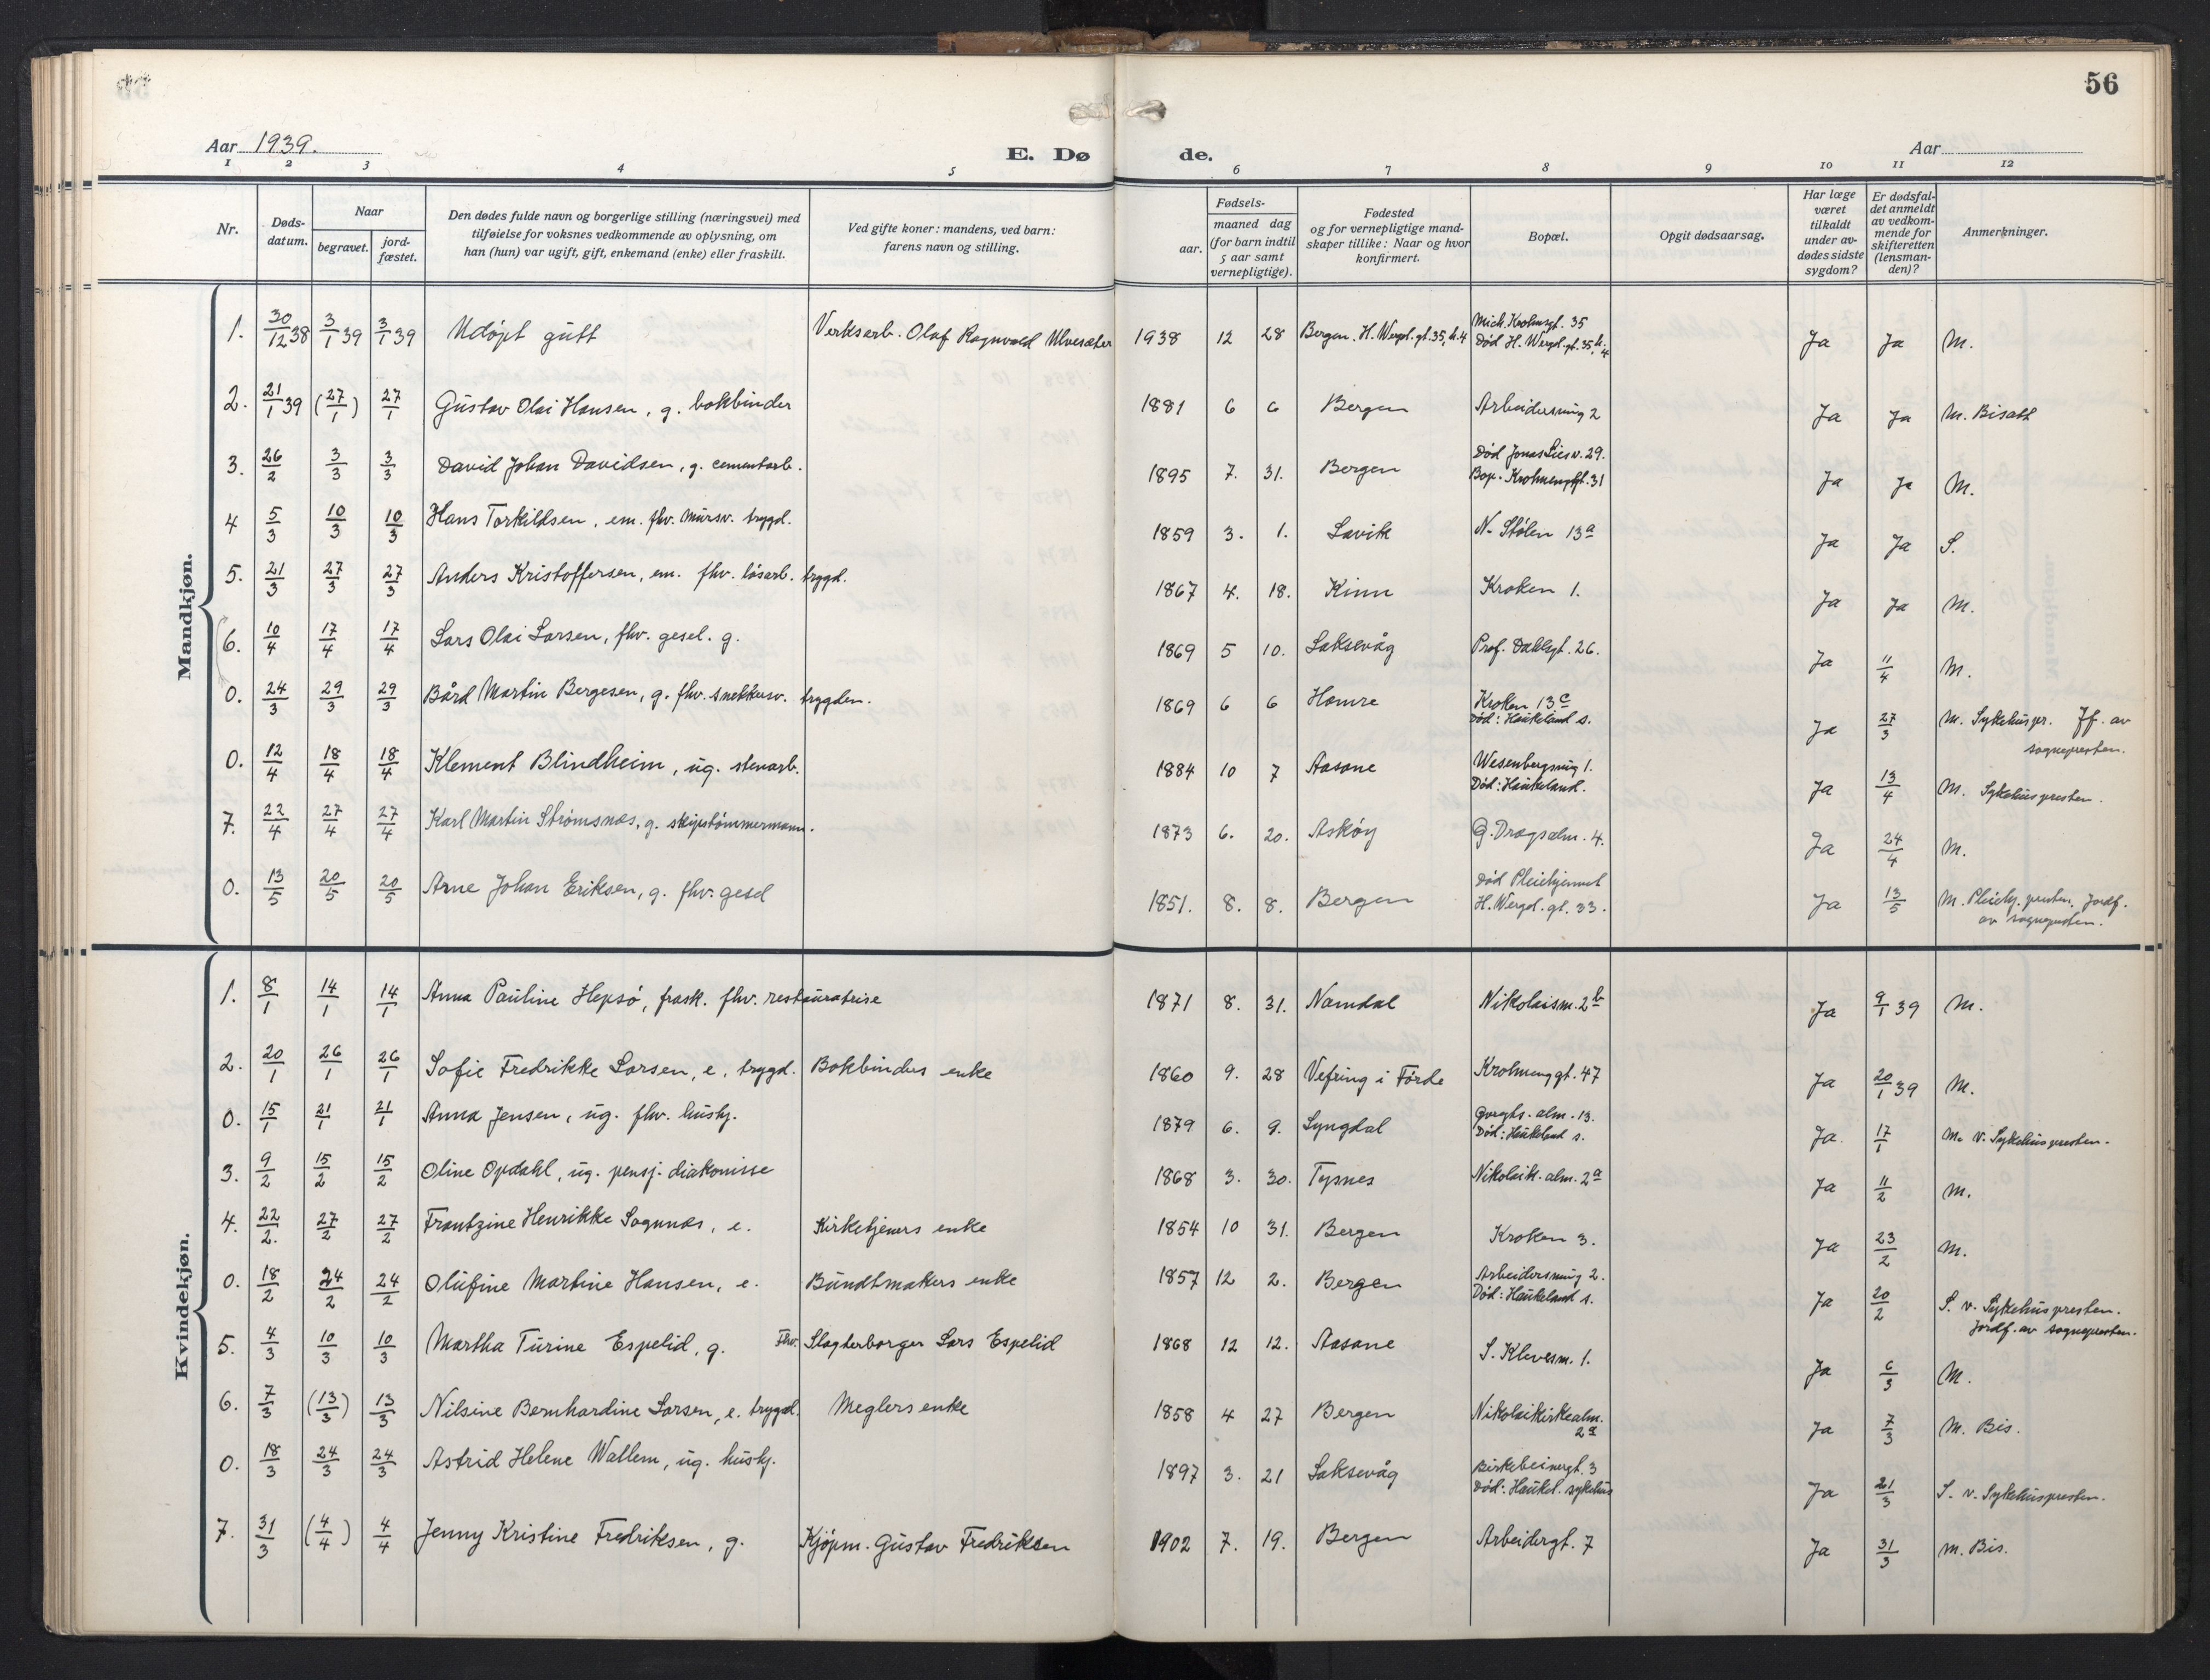 56
Aar 1939.
E. Dø de.
Aar
1 2 3 4 5 6 7 8 9 10 11 12
Nr.
Døds-
datum.
Naar
begravet.
jord-
fæstet.
Den dødes fulde navn og borgerlige stilling (næringsvei) med
tilføielse for voksnes vedkommende av oplysning, om
han (hun) var ugift, gift, enkemand (enke) eller fraskilt.
Ved gifte koner: mandens, ved barn:
farens navn og stilling.
Fødsels-
aar.
maaned dag
(for barn indtil
5 aar samt
vernepligtige).
Fødested
og for vernepligtige mand-
skaper tillike: Naar og hvor
konfirmert.
Bopæl.
Opgit dødsaarsag.
Har læge
været
tilkaldt
under av-
dødes sidste
sygdom?
Er dødsfal-
det anmeldt
av vedkom-
mende for
skifteretten
(lensman-
den)?
Anmerkninger.
Mandkjøn.
1. 30/12 38 3/1 39 3/1 39 Udøpt gutt Verksarb. Olaf Ragnvald Ulvesæter 1938 12 28 Bergen. H. Wergl. gt. 35, h. 4 Mich. Krohnsgt. 35 Ja Ja M.
Død H. Wergl. gt. 35, h. 4
2. 21/1 39 (27/1) 27/1 Gustav Olai Hansen, g. bokbinder 1881 6 6 Bergen Arbeidersmug 2 Ja Ja M. Bisatt
3. 26/2 3/3 3/3 David Johan Davidsen, g. cementarb. 1895 7. 31. Bergen Død Jonas Liesv. 29. Ja Ja M.
Bop. Krohnenggt. 31
4 5/3 10/3 10/3 Hans Torkildsen, em. fhv. mursv. trygd. 1859 3. 1. Lavik N. Stølen 13a Ja Ja S.
5. 21/3 27/3 27/3 Anders Kristoffersen, em. fhv. løsarb. trygd. 1867 4. 18. Kinn Kroken 1. Ja Ja M.
6. 10/4 17/4 17/4 Lars Olai Larsen, fhv. gesel. g. 1869 5 10. Laksevåg Prof. Dahlsgt. 26. Ja 11/4 M.
0. 24/3 29/3 29/3 Bård Martin Bergesen, g. fhv. snekkersv. trygden. 1869 6 6 Hamre Kroken 13c Ja 27/3 M. Sykehuspr. Jf. av
Død: Haukeland s. sognepresten.
0. 12/4 18/4 18/4 Klement Blindheim, ug. stenarb. 1884 10 7 Aasane Wesenbergsmug 1. Ja 13/4 M. Sykehuspresten.
Død: Haukeland.
7. 22/4 27/4 27/4 Karl Martin Strømsnes, g. skipstømmermann. 1873 6. 20. Askøy G. Dragsalm. 4. Ja 24/4 M.
0. 13/5 20/5 20/5 Arne Johan Eriksen, g. fhv. gesel 1851. 8. 8. Bergen Død Pleiehjemmet Ja 13/5 M. Pleiehj. presten. Jordf.
H. Wergl. gt. 33. av sognepresten.
Kvindekjøn.
1. 8/1 14/1 14/1 Anna Pauline Hepsø, frask. fhv. restauratrise 1871 8. 31. Namdal Nikolaism. 2b Ja 9/1 39 M.
2. 20/1 26/1 26/1 Sofie Fredrikke Larsen, e. trygd. Bokbinders enke 1860 9. 28 Vefring i Førde Krohnenggt. 47 Ja 20/1 39 M.
0. 15/1 21/1 21/1 Anna Jensen, ug. fhv. hushj. 1879 6. 9. Lyngdal alm. 13. Ja. 17/1 M. v. Sykehuspresten.
Død: Haukeland s.
3. 9/2 15/2 15/2 Oline Opdahl, ug. pensj. diakonisse 1868 3. 30. Tysnes Nikolaik. alm. 2a Ja 11/2 M.
4. 22/2. 27/2 27/2 Frantzine Henrikke Sognnæs, e. Kirketjeners enke 1854 10 31. Bergen Kroken 3. Ja 23/2 M.
0. 18/2 24/2 24/2 Olufine Martine Hansen, e. Bundtmakers enke 1857 12 2. Bergen Arbeidersmug 2. Ja 20/2 S. v. Sykehuspresten.
Død: Haukeland s. Jordf. av sognepresten.
5. 4/3 10/3 10/3 Martha Turine Espelid, g. Fhv. Slagterborger Lars Espelid 1868 12 12. Aasane S. Klevesm. 1. Ja 6/3 M.
6. 7/3 (13/3) 13/3 Nilsine Bernhardine Larsen, e. trygd. Meglers enke 1858 4 27 Bergen Nikolaikirkealm. Ja 7/3 M. Bis.
2a
0. 18/3 24/3 24/3 Astrid Helene Wallem, ug. hushj. 1897 3. 21 Laksevåg Birkebeinergt. 3 Ja 21/3 S. v. Sykehuspresten.
Død: Haukel. sykehus
7. 31/3 (4/4) 4/4 Jenny Kristine Fredriksen, g. Kjøpm. Gustav Fredriksen 1902 7. 19. Bergen Arbeidergt. 7 Ja 31/3 M. Bis.